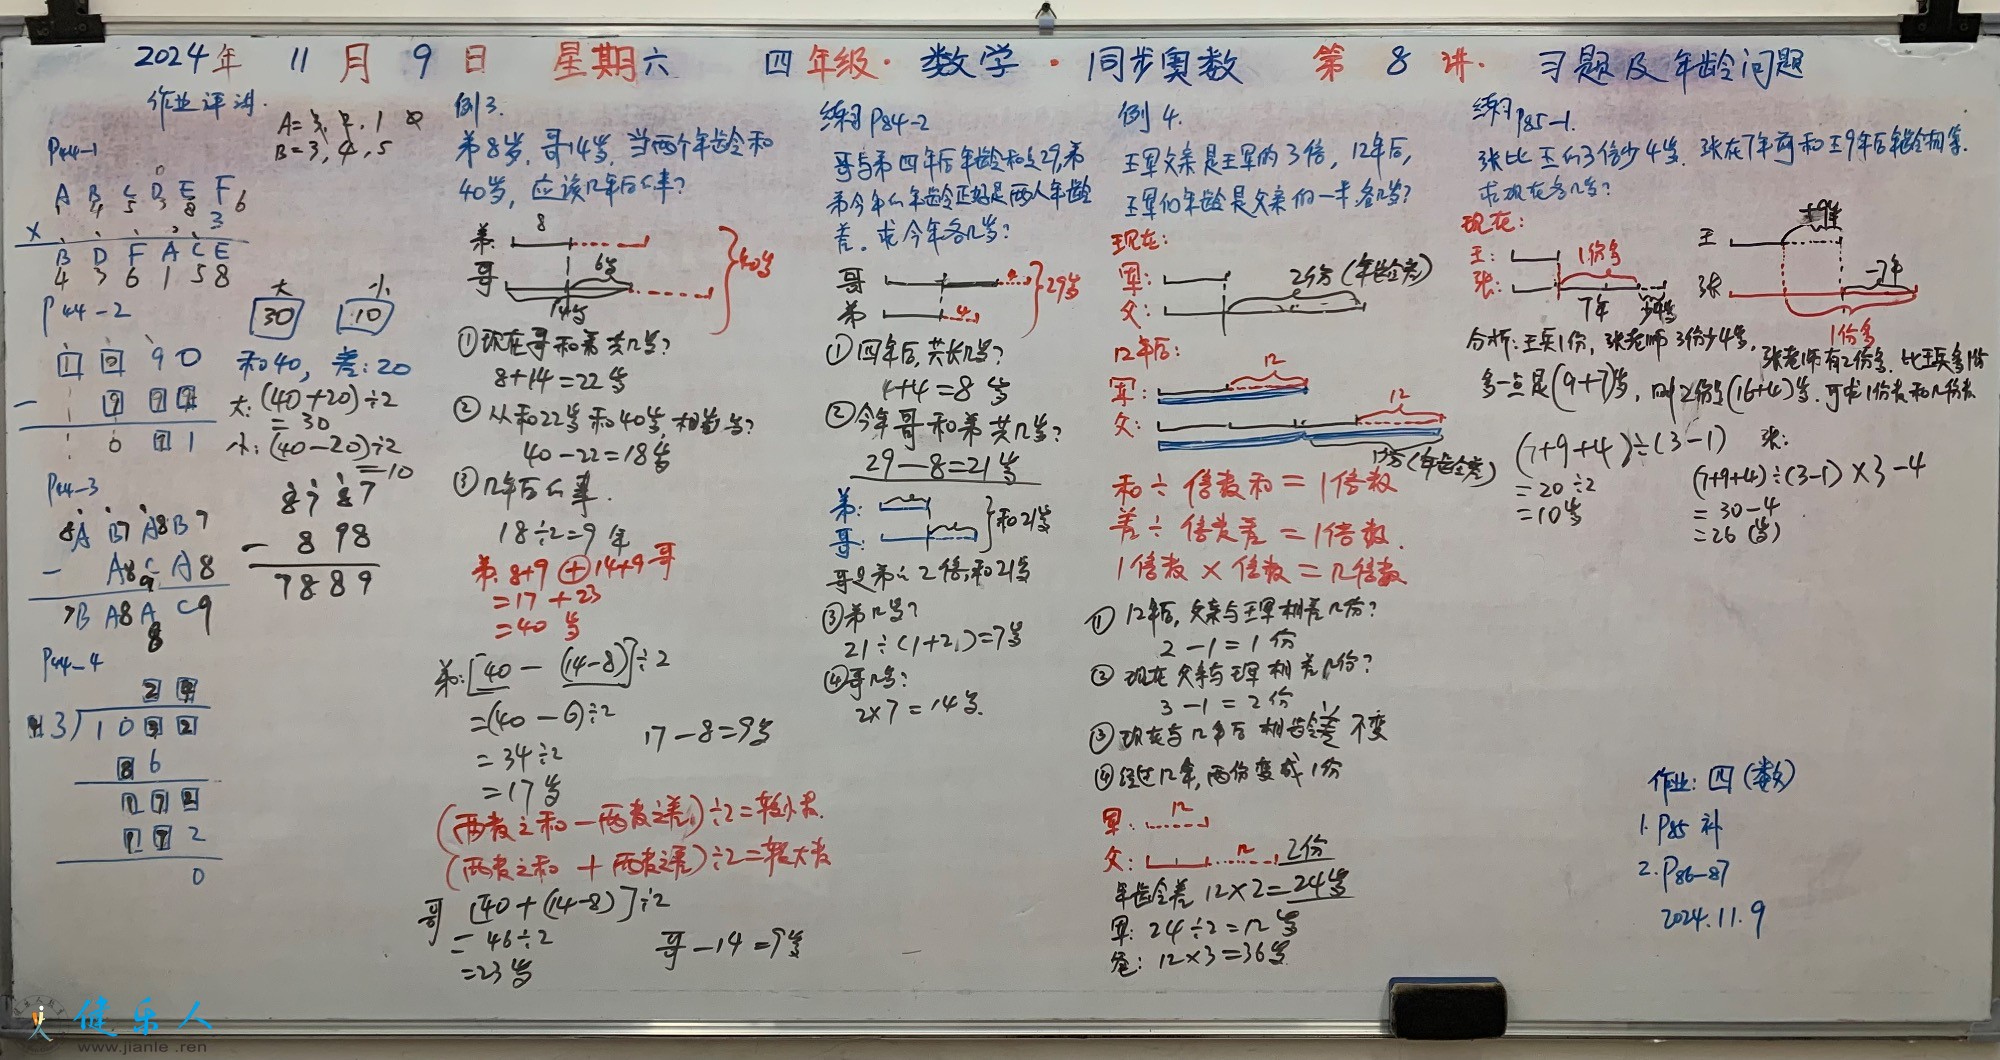 2024年 11月 9日 星期六 四年级·数学·同步奥数 第 8 讲· 习题及年龄问题
作业评讲.
P44-1
A B C D E F
1 4 5 3 8 6
× 3
B D F A C E
4 3 6 1 5 8
P44-2
1 0 9 0
0 1
P44-3
8A B7 A8 B7
- A8 C9 A8
7B A8 A8 C9
P44-4
0
B=3, 4, 5
大 小
30 10
和40, 差:20
大:(40+20)÷2
=30
小:(40-20)÷2
=10
8787
- 898
7889
例3.
弟8岁,哥14岁,当两个年龄和
40岁,应该几年后的事?
弟: 8
哥 6岁
14岁
40岁
①现在哥和弟共几岁?
8+14=22岁
②从和22岁和40岁,相差岁?
40-22=18岁
③几年后的事.
18÷2=9年
弟.8+9 + 14+9哥
=17+23
=40岁
弟:[40-(14-8)]÷2
=(40-6)÷2
=34÷2
=17岁
17-8=9岁
(两数之和-两数之差)÷2=较小数.
(两数之和+两数之差)÷2=较大数
哥 [40+(14-8)]÷2
=46÷2
=23岁
哥-14=9岁
练习P84-2
哥与弟四年后年龄和是29,弟
弟今年的年龄正好是两人年龄
差.求今年各几岁?
哥
弟 4
29岁
①四年后,共长几岁?
4+4=8岁
②今年哥和弟共几岁?
29-8=21岁
弟:
哥:
和21岁
哥是弟的2倍,和21岁
③弟几岁?
21÷(1+2)=7岁
④哥几岁?
2×7=14岁.
例4.
王军父亲是王军的3倍,12年后,
王军的年龄是父亲的一半.各几岁?
现在:
军:
父:
2份(年龄差)
12年后:
军: 12
父: 12
1份(年龄差)
和÷倍数和=1倍数
差÷倍数差=1倍数.
1倍数×倍数=几倍数
①12年后,父亲与王军相差几份?
2-1=1份
②现在父亲与王军相差几份?
3-1=2份
③现在与12年后相龄差不变
④经过12年,两份变成1份
军: 12
父: 12 2份
年龄差 12×2=24岁
军:24÷2=12岁
爸:12×3=36岁
练习P85-1.
张比王的3倍少4岁.张在7年前和王9年后年龄相等.
求现在各几岁?
现在:
王: 1份多
张: 7年 少4岁
王 +9年
张 -7年
1份多
分析:王兵1份,张老师3份少4岁.
张老师有2份多.比王兵多1份
多一点是(9+7)岁,则2份是(16+4)岁.可求1份数和几份数
(7+9+4)÷(3-1)
=20÷2
=10岁
张:
(7+9+4)÷(3-1)×3-4
=30-4
=26(岁)
作业:四(数)
1.P85补
2.P86-87
2024.11.9
健乐人
www.jianle.ren